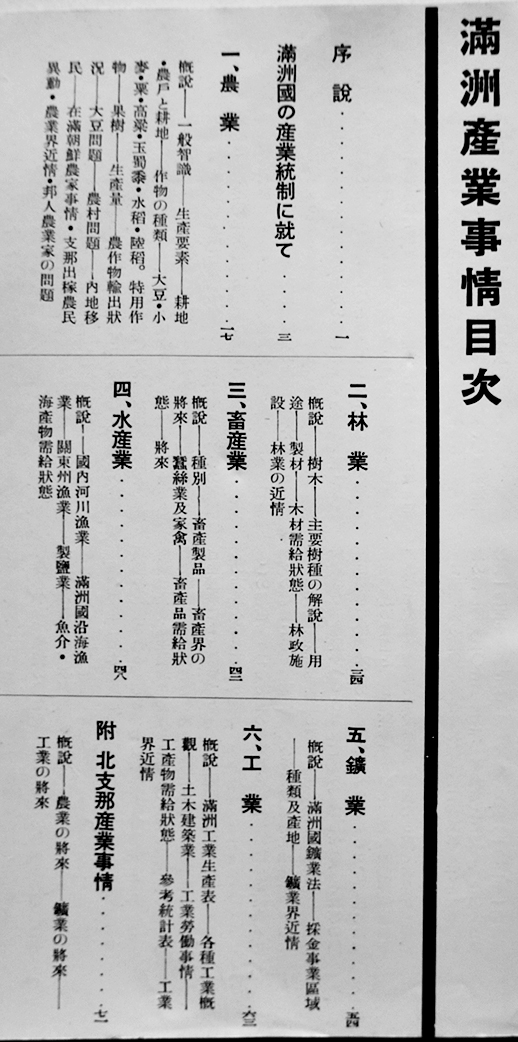 滿洲產業事情目次
序說‥‥‥‥一
滿洲國の産業統制に就て‥‥三
一、農業‥‥‥‥一七
槪說――一般智識――生産要素――耕地
・農戶と耕地――作物の種類――大豆・小
麥・粟・高粱・玉蜀黍・水稻・陸稻。特用作
物――果樹――生産量――農作物輸出狀
況――大豆問題――農村問題――內地移
民――在滿朝鮮農家事情・支那出稼農民
異動・農業界近情・邦人農業家の問題
二、林業‥‥‥‥三四
槪說――樹木――主要樹種の解說――用
途――製材――木材需給狀態――林政施
設――林業の近情
三、畜産業‥‥‥‥四二
槪說――種別――畜産製品――畜産界の
將來――蠶絲業及家禽――畜産品需給狀
態――將來
四、水産業‥‥‥‥四八
槪說――國內河川漁業――滿洲國沿海漁
業――關東州漁業――製鹽業――魚介・
海産物需給狀態
五、鑛業‥‥‥‥五四
槪說――滿洲國鑛業法――採金事業區域
――種類及産地――鑛業界近情
六、工業‥‥‥‥六三
槪說――滿洲工業生産表――各種工業槪
觀――土木建築業――工業勞働事情――
工産物需給狀態――參考統計表――工業
界近情
附 北支那産業事情‥‥‥‥七一
槪說――農業の將來――鑛業の將來――
工業の將來